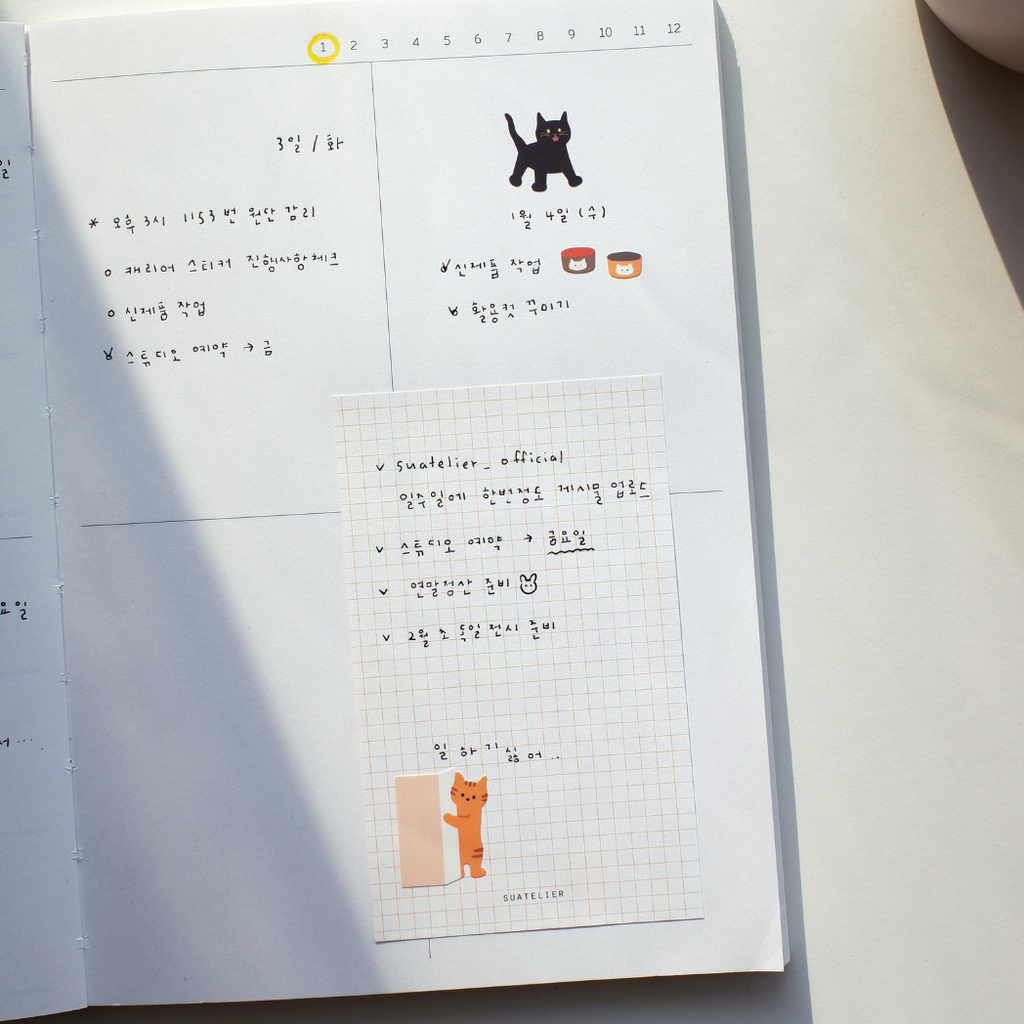 1 2 3 4 5 6 7 8 9 10 11 12
3일 / 화
* 오후 3시 1153번 원단 감리
o 캐리어 스티커 진행사항체크
o 신제품 작업
v 스튜디오 예약 → 금
1월 4일 (수)
v 신제품 작업
v 활용컷 꾸미기
v suatelier_official
일주일에 한번정도 게시물 업로드
v 스튜디오 예약 → 금요일
v 연말정산 준비
v 2월 초 독일 전시 준비
일 하기 싫어..
SUATELIER
일
요일
서...